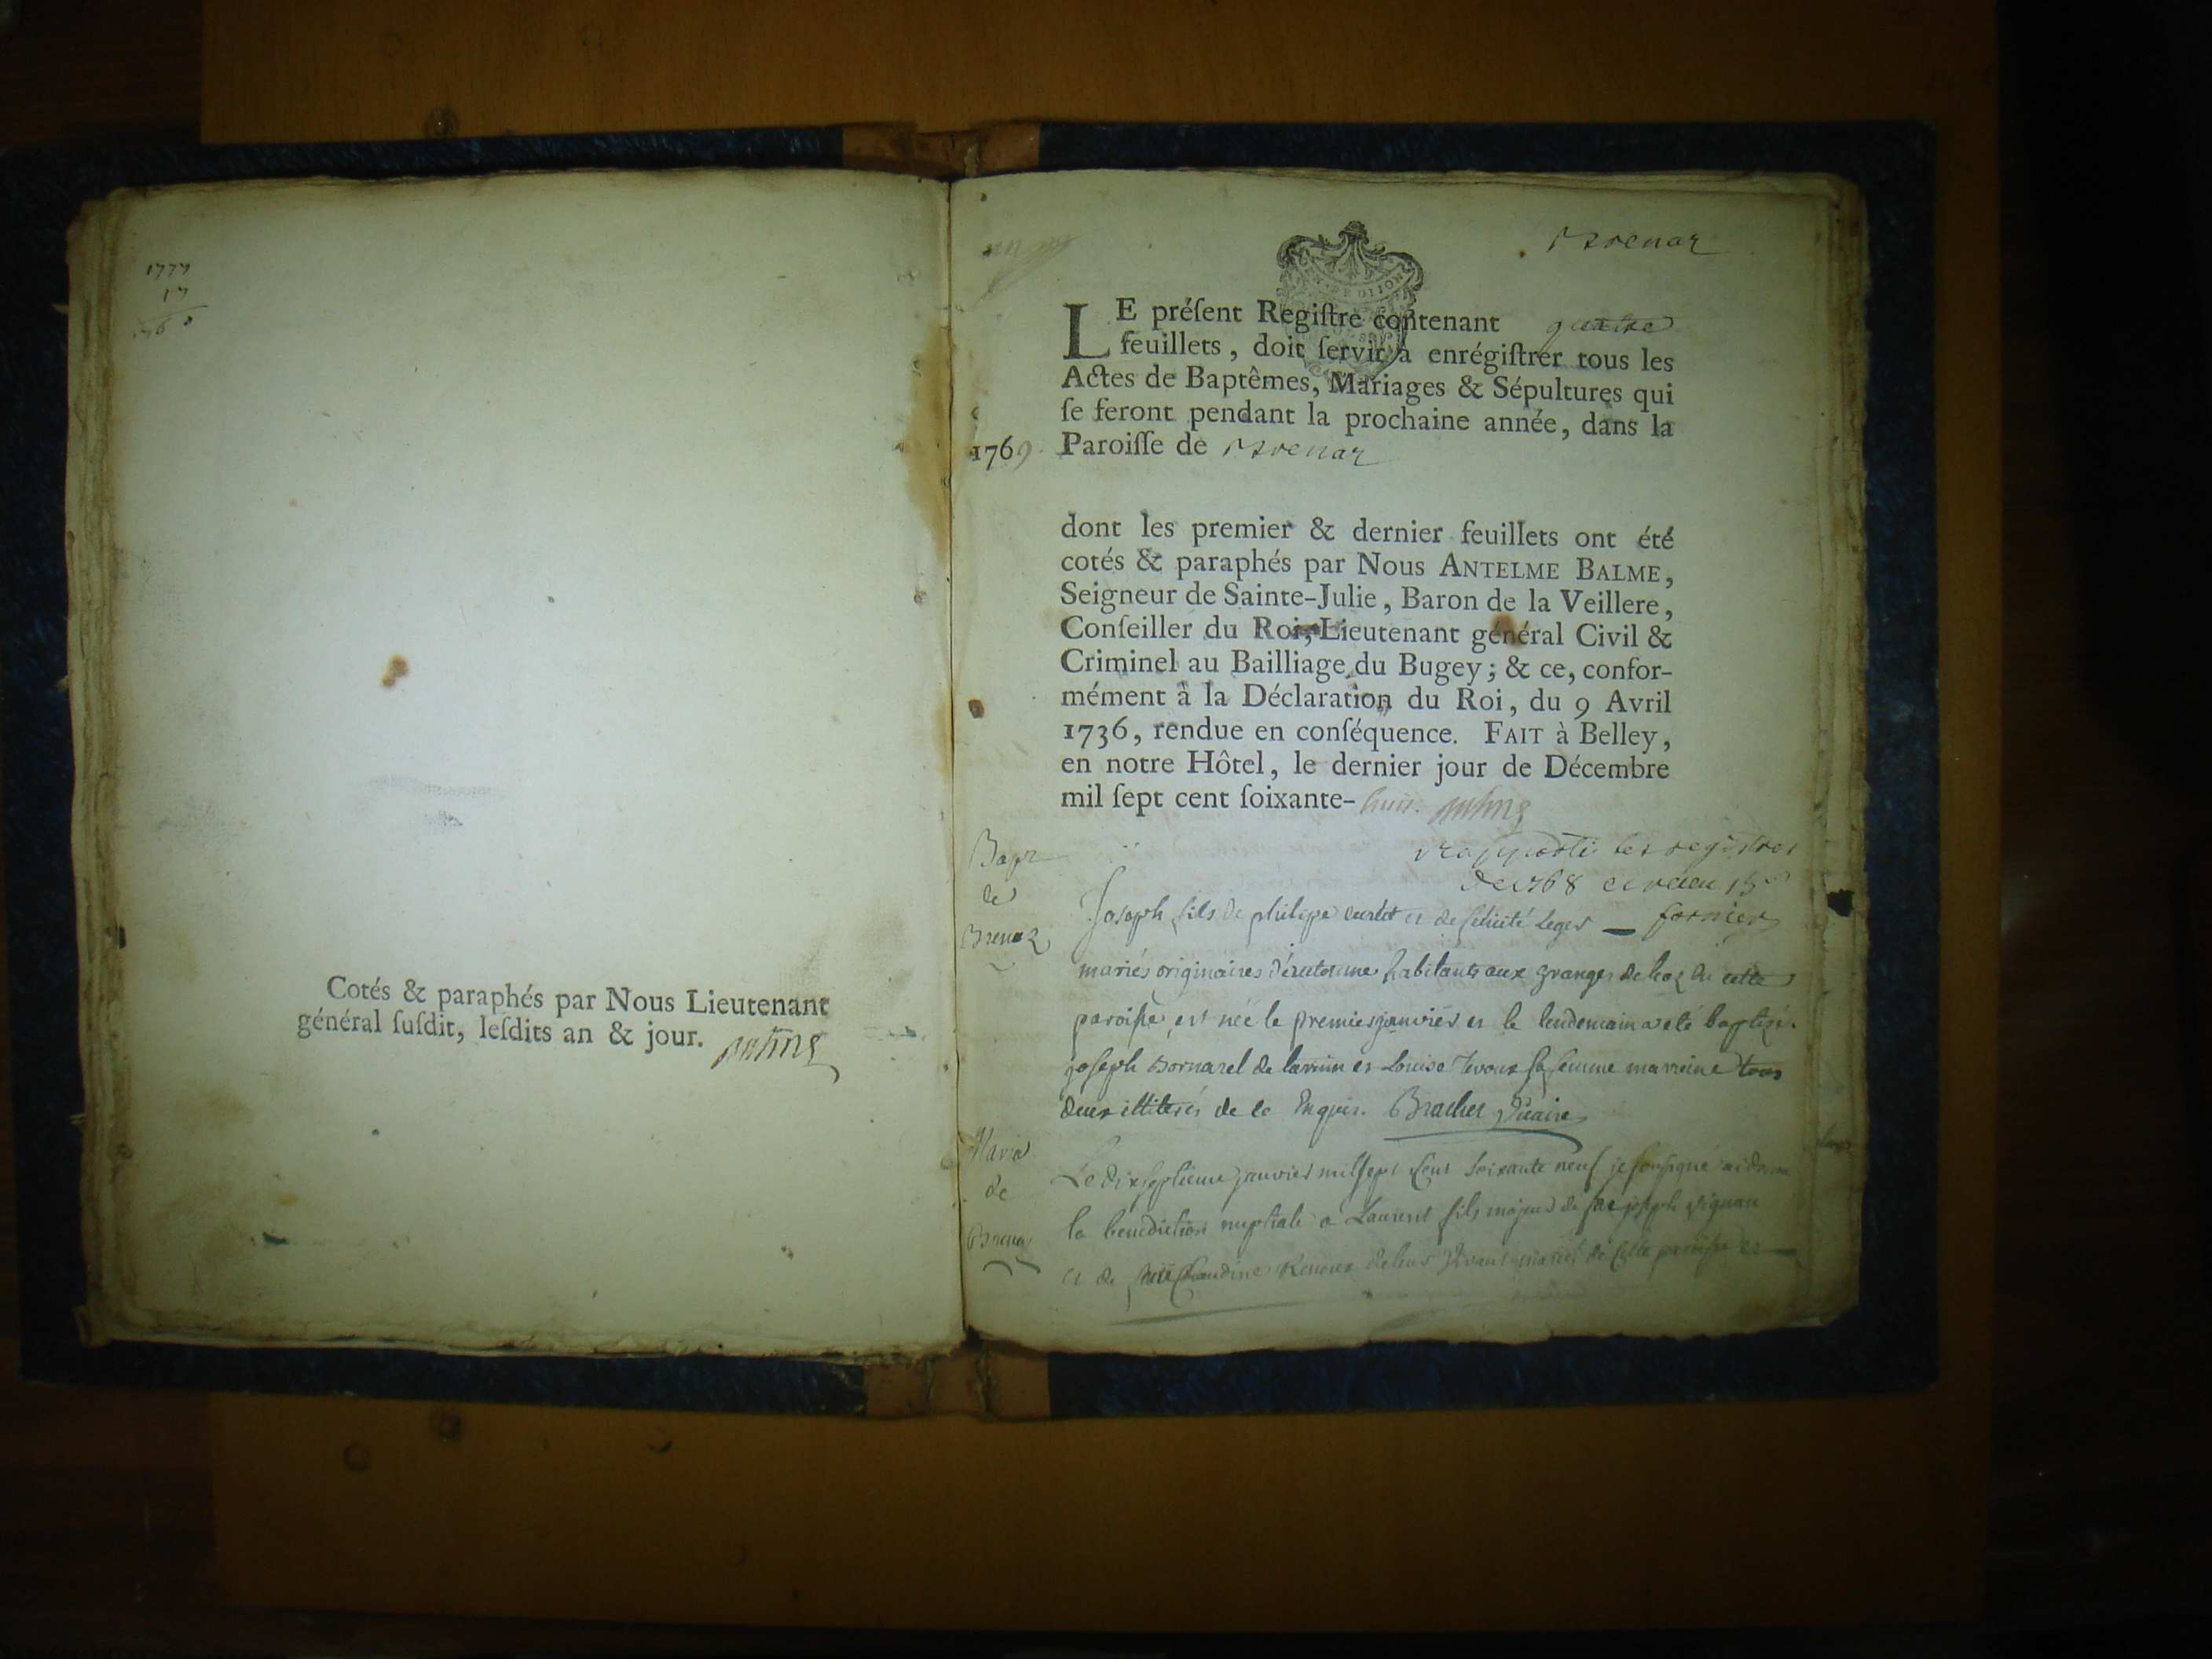 1777
17
Cotés & paraphés par Nous Lieutenant
général ſuſdit, leſdits an & jour.
Brenaz
LE préſent Regiſtre contenant quatre
feuillets, doit ſervir à enrégiſtrer tous les
Actes de Baptêmes, Mariages & Sépultures qui
ſe feront pendant la prochaine année, dans la
1769 Paroiſſe de Brenaz
dont les premier & dernier feuillets ont été
cotés & paraphés par Nous ANTELME BALME,
Seigneur de Sainte-Julie, Baron de la Veillere,
Conſeiller du Roi, Lieutenant général Civil &
Criminel au Bailliage du Bugey; & ce, confor-
mément à la Déclaration du Roi, du 9 Avril
1736, rendue en conſéquence. FAIT à Belley,
en notre Hôtel, le dernier jour de Décembre
mil ſept cent ſoixante-huit.
rapporté les registres
de 1768 et receu 15s
fornier
Bapt
de
Brenaz
Joseph fils de philipe et de felicité Leger
mariés originaires habitants aux granges de de cette
paroisse est née le premier janvier et le lendemain a eté baptisé.
joseph Bornarel de et Louise sa femme marreine tous
deux illiterés de ce Enquis. Brachet Vicaire
Maria
de
Brenaz
Le dixseptieme janvier mil sept cent soixante neuf je soussigné ai donné
la benediction nuptiale a Laurent fils majeur de feu joseph vignau
et de feue Claudine de leur vivant mariés de cette paroisse et